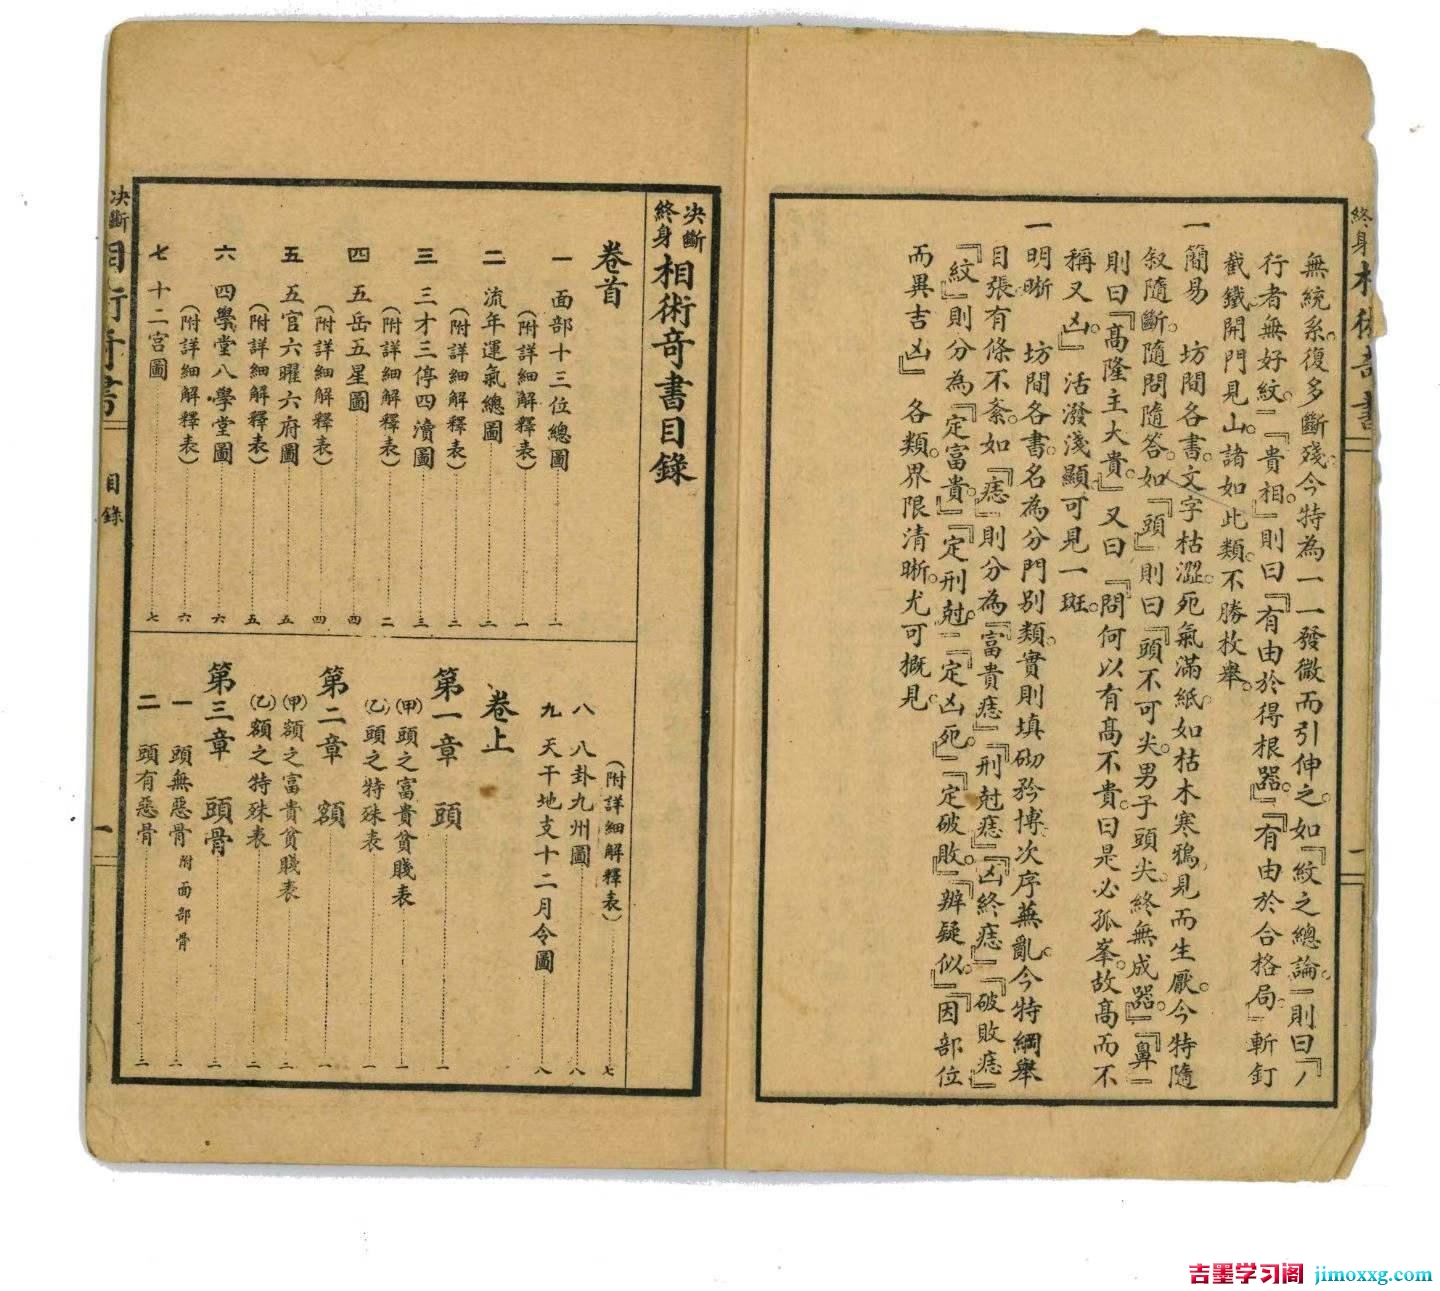 終身相術奇書
無統系。復多斷殘。今特為一一發微而引伸之。如『紋之總論』則曰『ノ
行者無好紋』『貴相』則曰『有由於得根器。』『有由於合格局』斬釘
截鐵。開門見山。諸如此類。不勝枚舉。
一 簡易。 坊間各書。文字枯澀。死氣滿紙。如枯木寒鴉。見而生厭。今特隨
敘隨斷。隨問隨答。如『頭』則曰『頭不可尖。男子頭尖。終無成器。』『鼻』
則曰『高隆主大貴。』又曰『問何以有高不貴。曰是必孤峯。故高而不
稱又凶。』活潑淺顯。可見一斑。
一 明晰 坊間各書。名為分門別類。實則填砌矜博。次序蕪亂。今特綱舉
目張。有條不紊。如『痣』則分為『富貴痣』『刑尅痣』『凶終痣』『破敗痣』
『紋』則分為『定富貴』『定刑尅』『定凶死』『定破敗。』『辨疑似。』『因部位
而異吉凶』各類。界限清晰。尤可概見。
二
決斷終身相術奇書目錄
卷首
一 面部十三位總圖 一
(附詳細解釋表) 一
二 流年運氣總圖 二
(附詳細解釋表) 二
三 三才三停四瀆圖 三
(附詳細解釋表) 三
四 五岳五星圖 四
(附詳細解釋表) 四
五 五官六曜六府圖 五
(附詳細解釋表) 五
六 四學堂八學堂圖 六
(附詳細解釋表) 六
七 十二宮圖 七
(附詳細解釋表) 七
八 八卦九州圖 八
九 天干地支十二月令圖 八
卷上 一
第一章 頭 一
(甲)頭之富貴貧賤表 一
(乙)頭之特殊表 一
第二章 額 一
(甲)額之富貴貧賤表 二
(乙)額之特殊表 二
第三章 頭骨 二
一 頭無惡骨 附面部骨 二
二 頭有惡骨 二
決斷
相術奇書
目錄
一
吉墨学习阁 jimoxxg.com